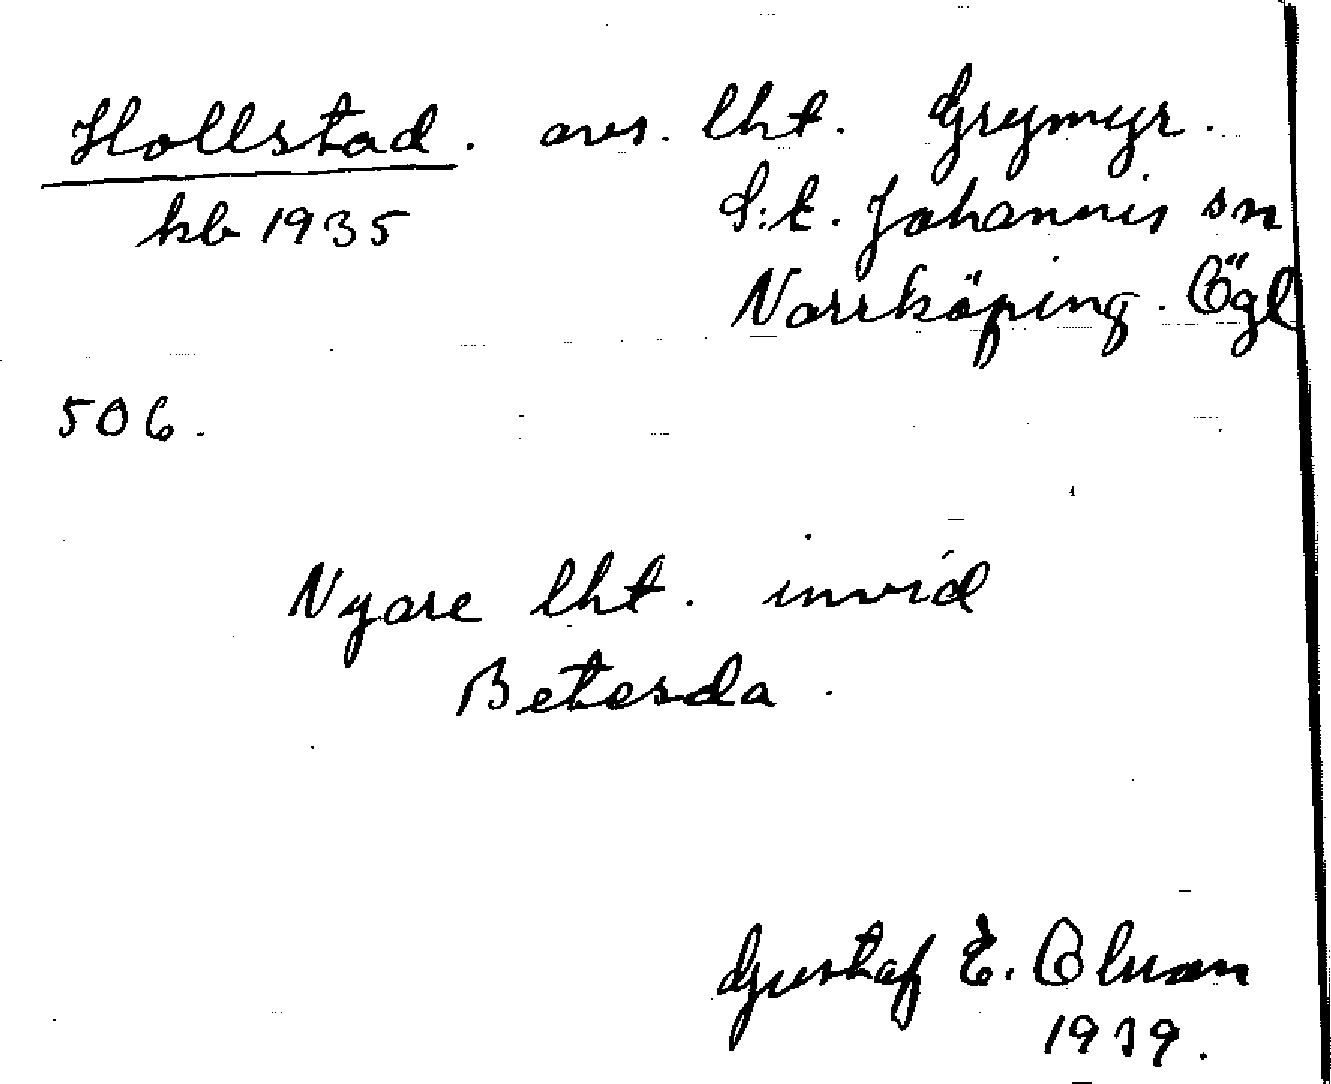 Hollstad. avs. lht. Grymyr.
kb 1935 S:t. Johannis sn
Norrköping. Ögl
506.
Nyare lht. invid
Betesda.
Gustaf E. Olsson
1939.